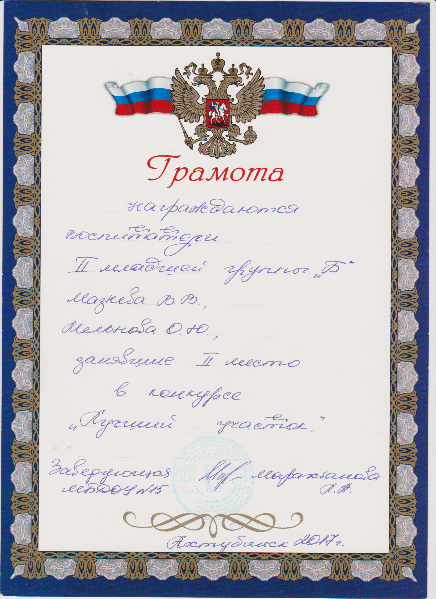 Грамота
награждаются
воспитатели
II младшей группы „Б“
Мазнева В.В.,
О.Ю.,
занявшие II место
в конкурсе
„Лучший участок“.
Заведующая
МБДОУ №15
Ахтубинск 2017г.